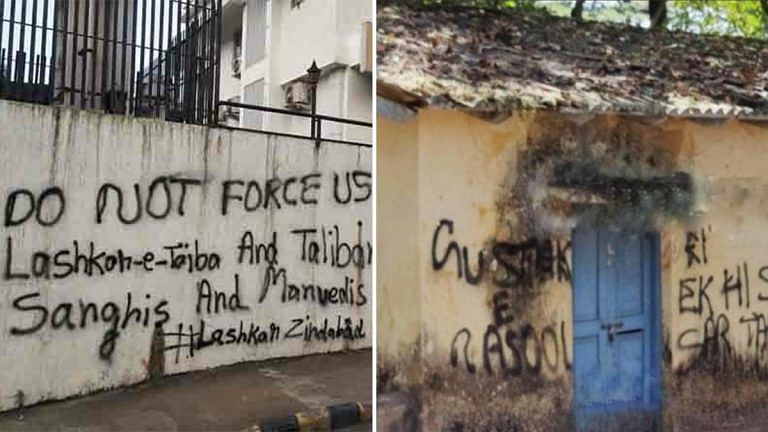 DO NOT FORCE US
Lashkar-e-Taiba And Taliban
Sanghis And Manvedis
#Lashkar Zindabad
GUSTEK
E
RASOOL
KI
EK HI S
SAR TA